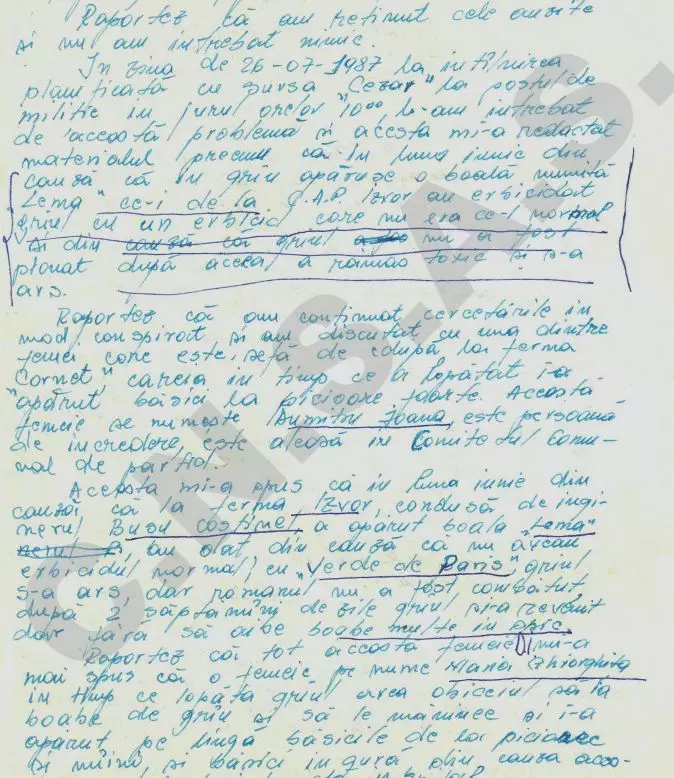 Raportez că am reținut cele auzite
și nu am întrebat nimic.
În ziua de 26-07-1987 la întîlnirea
planificată cu sursa "Cezar" la postul de
miliție în jurul orelor 10⁰⁰ l-am întrebat
de această problemă și acesta mi-a redactat
materialul precum că în luna iunie din
cauză că în grîu apăruse o boală numită
"Lema" cei de la C.A.P. Izvor au erbicidat
grîul cu un erbicid care nu era cel normal
și din cauză că grîul nu a fost
după aceea a rămas toxic și s-a
ars.
Raportez că am continuat cercetările în
mod conspirat și am discutat cu una dintre
femei care este șefă de echipă la ferma
"Cornet", careia în timp ce a lopătat i-a
apărut bășici la picioare foarte. Această
femeie se numește Dumitru Ioana, este persoană
de încredere, este aleasă în Comitetul Comu-
nal de partid.
Aceasta mi-a spus că în luna iunie din
cauză că la ferma Izvor, condusă de ingi-
nerul Busu Costinel a apărut boala "Lema"
au dat din cauză că nu aveau
erbicidul normal, cu "Verde de Paris" grîul
s-a ars dar nu a fost combătut,
după 2 săptămîni de zile grîul și-a revenit
dar fără să aibe boabe multe în spic.
Raportez că tot această femeie mi-a
mai spus că o femeie pe nume Maria Ghiorghița
în timp ce lopăta grîul avea obiceiul să ia
boabe de grîu și să le mănînce și i-a
apărut pe lîngă bășicile de la picioare
și mîini, și bășici în gură din cauza aces-
C.N.S.A.S.